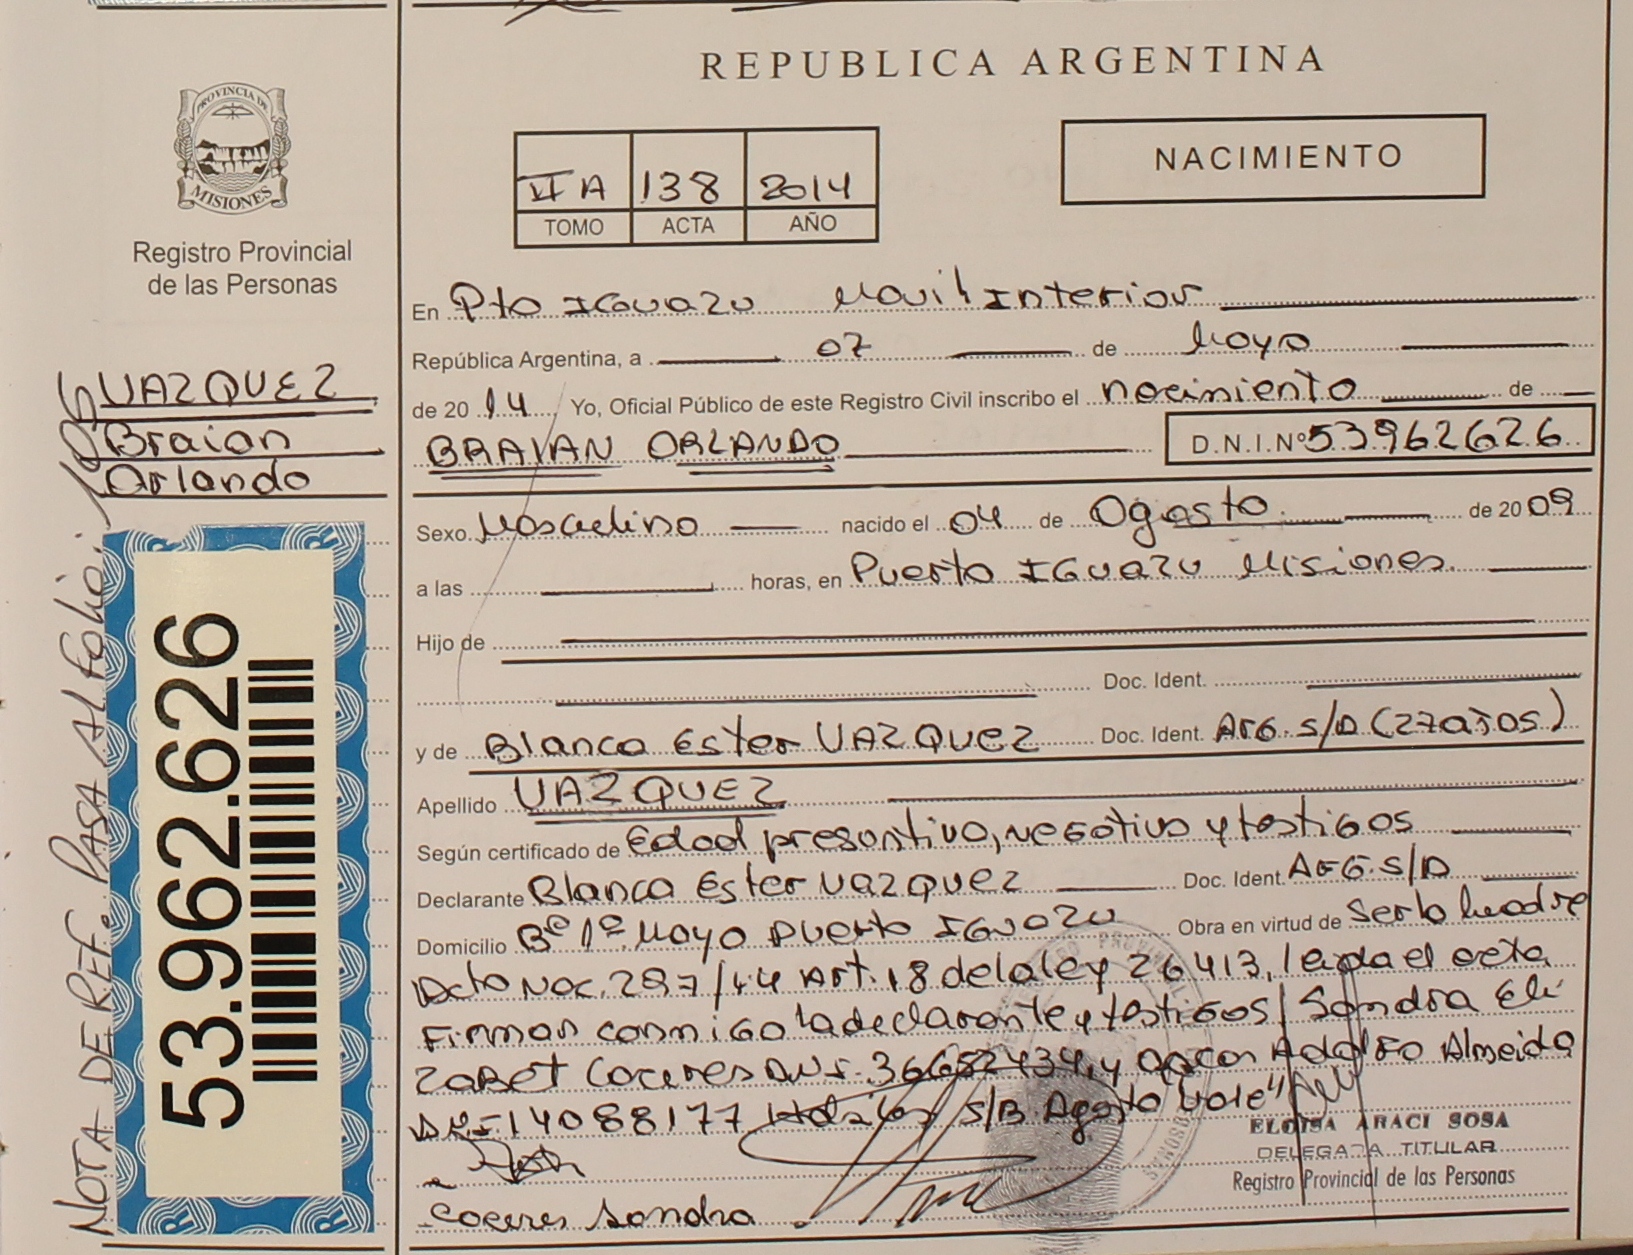 REPUBLICA ARGENTINA
PROVINCIA DE
MISIONES
Registro Provincial
de las Personas
VI A 138 2014
TOMO ACTA AÑO
NACIMIENTO
En Pto IGuazu Movil Interior
República Argentina, a 07 de Mayo
de 20 14 Yo, Oficial Público de este Registro Civil inscribo el nacimiento de
BRAIAN ORLANDO D.N.I.Nº 53962626
VAZQUEZ
Braian
Orlando
Sexo Masculino nacido el 04 de Agosto de 20 09
a las horas, en Puerto IGuazu Misiones.
Hijo de
Doc. Ident.
y de Blanca Ester VAZQUEZ Doc. Ident. ARG. S/D (27años)
Apellido VAZQUEZ
Según certificado de Edad presuntiva, negativo y testigos
Declarante Blanca Ester Vazquez Doc. Ident. ARG. S/D
Domicilio Bº 1º Mayo Puerto IGuazu Obra en virtud de Ser la Madre
Dcto Nac. 297/14 Art. 18 de la ley 26413, leida el acta
Firman conmigo la declarante y testigos Sandra Eli
zabet Coceres DNI. 36652434, y Adolfo Almeida
DNI 14088177 S/B Agosto Vale"
ELOISA ARACI SOSA
DELEGADA TITULAR
Registro Provincial de las Personas
Coceres Sandra
53.962.626
NOTA DE REF. PASA AL FOLIO: